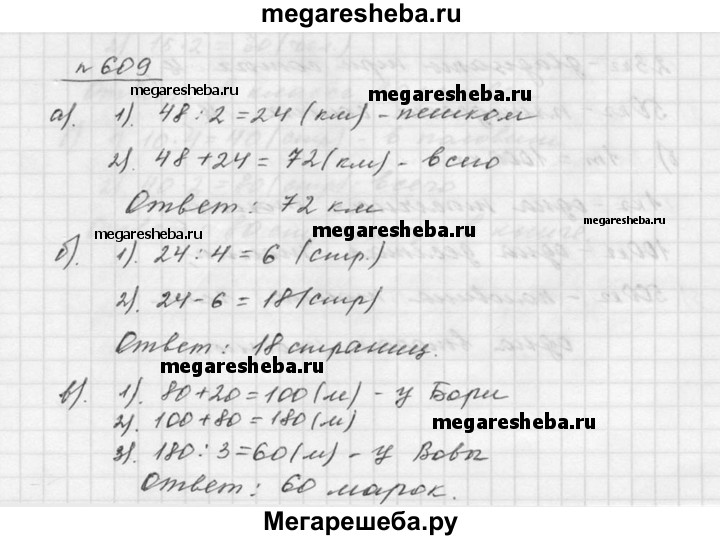 megaresheba.ru
№ 609
megaresheba.ru
megaresheba.ru
а). 1). 48 : 2 = 24 (км) - пешком
2). 48 + 24 = 72 (км) - всего
Ответ: 72 км
megaresheba.ru
megaresheba.ru
megaresheba.ru
б). 1). 24 : 4 = 6 (стр.)
2). 24 - 6 = 18 (стр)
Ответ: 18 страниц.
megaresheba.ru
в). 1). 80 + 20 = 100 (м) - у Бори
2). 100 + 80 = 180 (м)
megaresheba.ru
3). 180 : 3 = 60 (м) - у Вовы
Ответ: 60 марок.
megaresheba.ru
Мегарешеба.ру